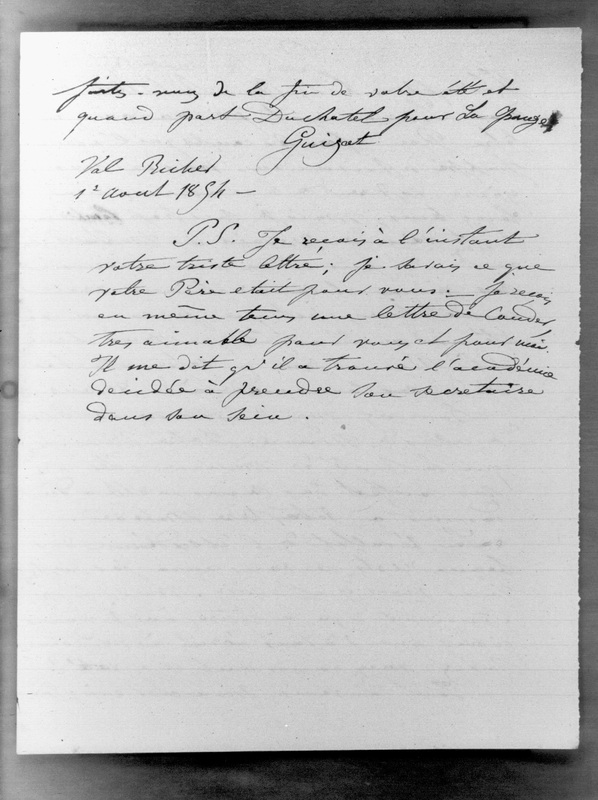 faites-vous de la fin de votre été et
quand part Duchatel pour La Grange
Guizot
Val Richer
1er aout 1854 -
P.S. Je reçois à l'instant
votre triste lettre; je savais ce que
votre Père etait pour vous. - Je reçois
en même tems une lettre de
tres aimable pour vous et pour moi.
Il me dit qu'il a trouvé l'académie
decidée à prendre son secretaire
dans son sein.